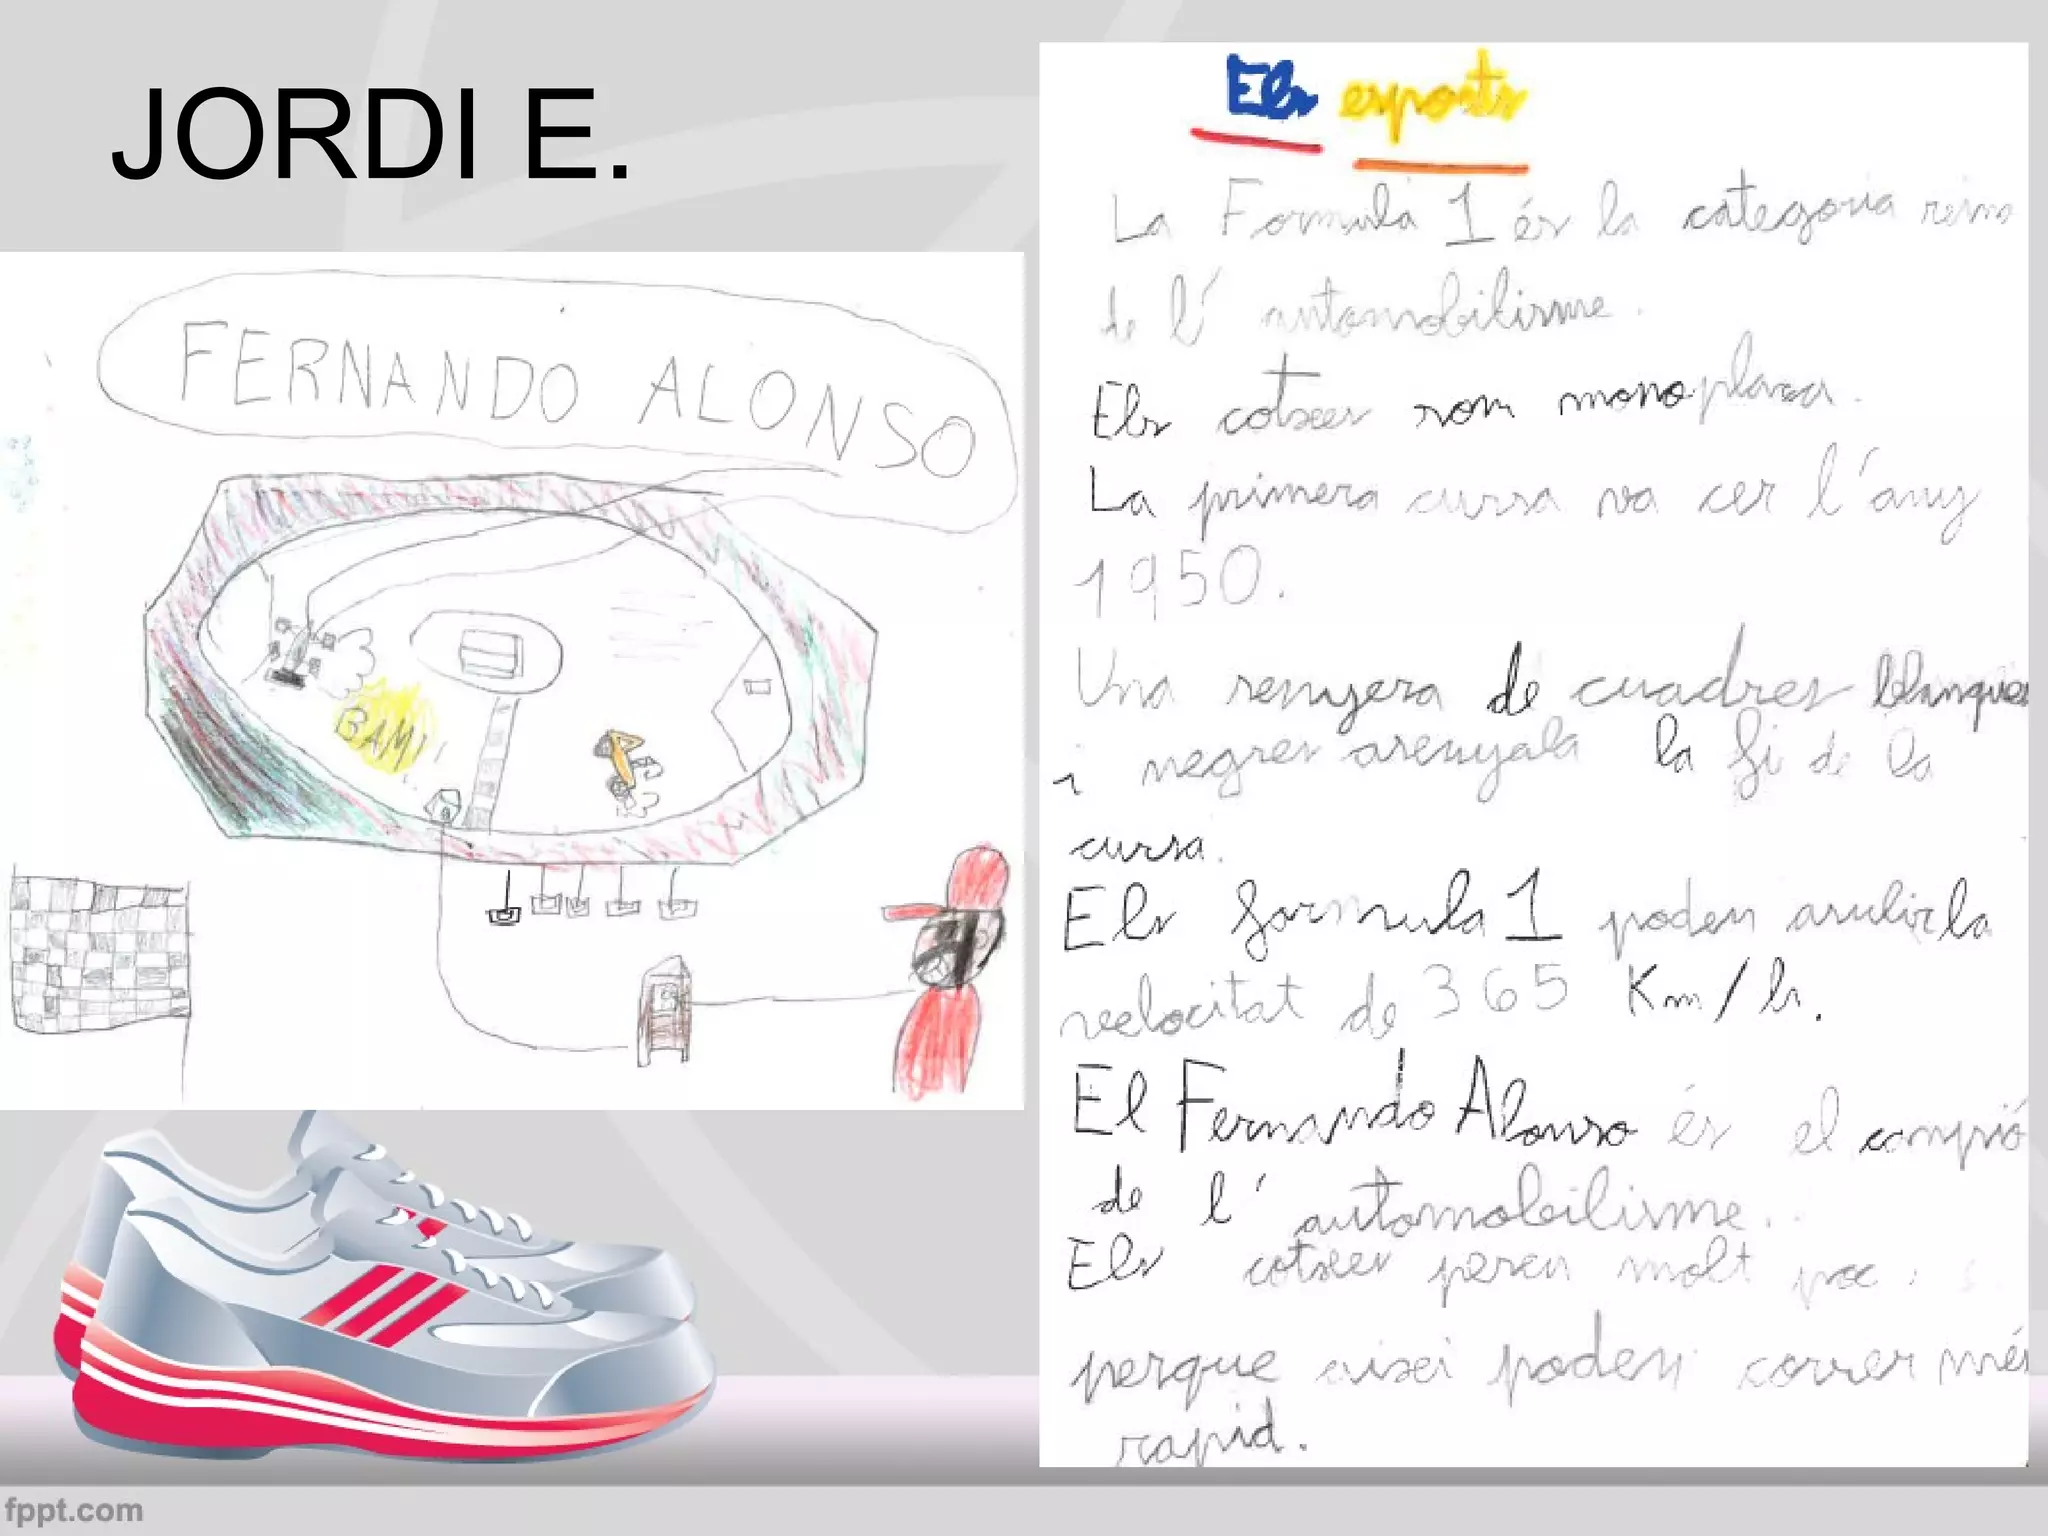 JORDI E.
FERNANDO ALONSO
BAM!!
Els esports
La Formula 1 és la categoria reina
de l' automobilisme.
Els cotxes som monoplasa.
La primera cursa va cer l'any
1950.
Una senyera de cuadres blanques
i negres asenyala la fi de la
cursa.
Els formula 1 poden asulir la
velocitat de 365 Km/h.
El Fernando Alonso és el campió
de l' automobilisme.
Els cotxes pesen molt poc
perque aixei poden correr més
rapid.
fppt.com